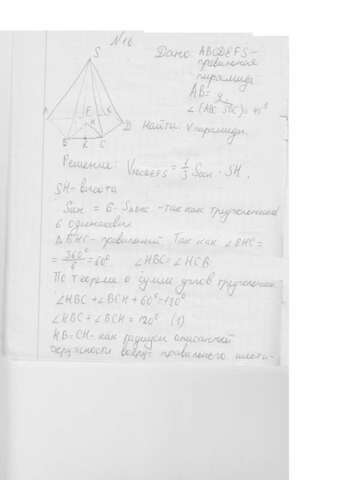 N16
S
Дано: ABCDEFS-
правильная
пирамида
AB=
∠(ABC SDC)=45°
E
K
H
D
Найти: V пирамиды.
B R C
Решение: V = 1/3 Sосн · SH,
SH-высота
Sосн = 6 · -так как треугольники
6 одинаковых
△BHC- правильный. Так как ∠BHC=
= 360°/6 = 60° ∠HBC=∠HCB
По теореме о сумме углов треугольника
∠HBC+∠BCH+60°=180°
∠HBC+∠BCH=120° (1)
HB=CH- как радиусы описанной
окружности вокруг правильного шести-